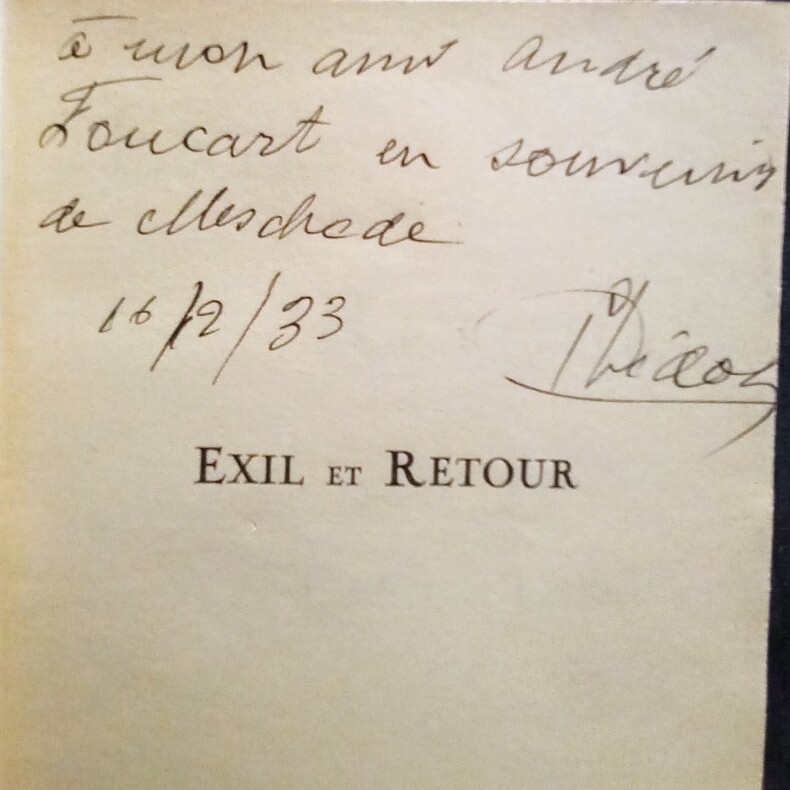 à mon ami André
Foucart en souvenir
de Meschede
16/2/33
EXIL ET RETOUR